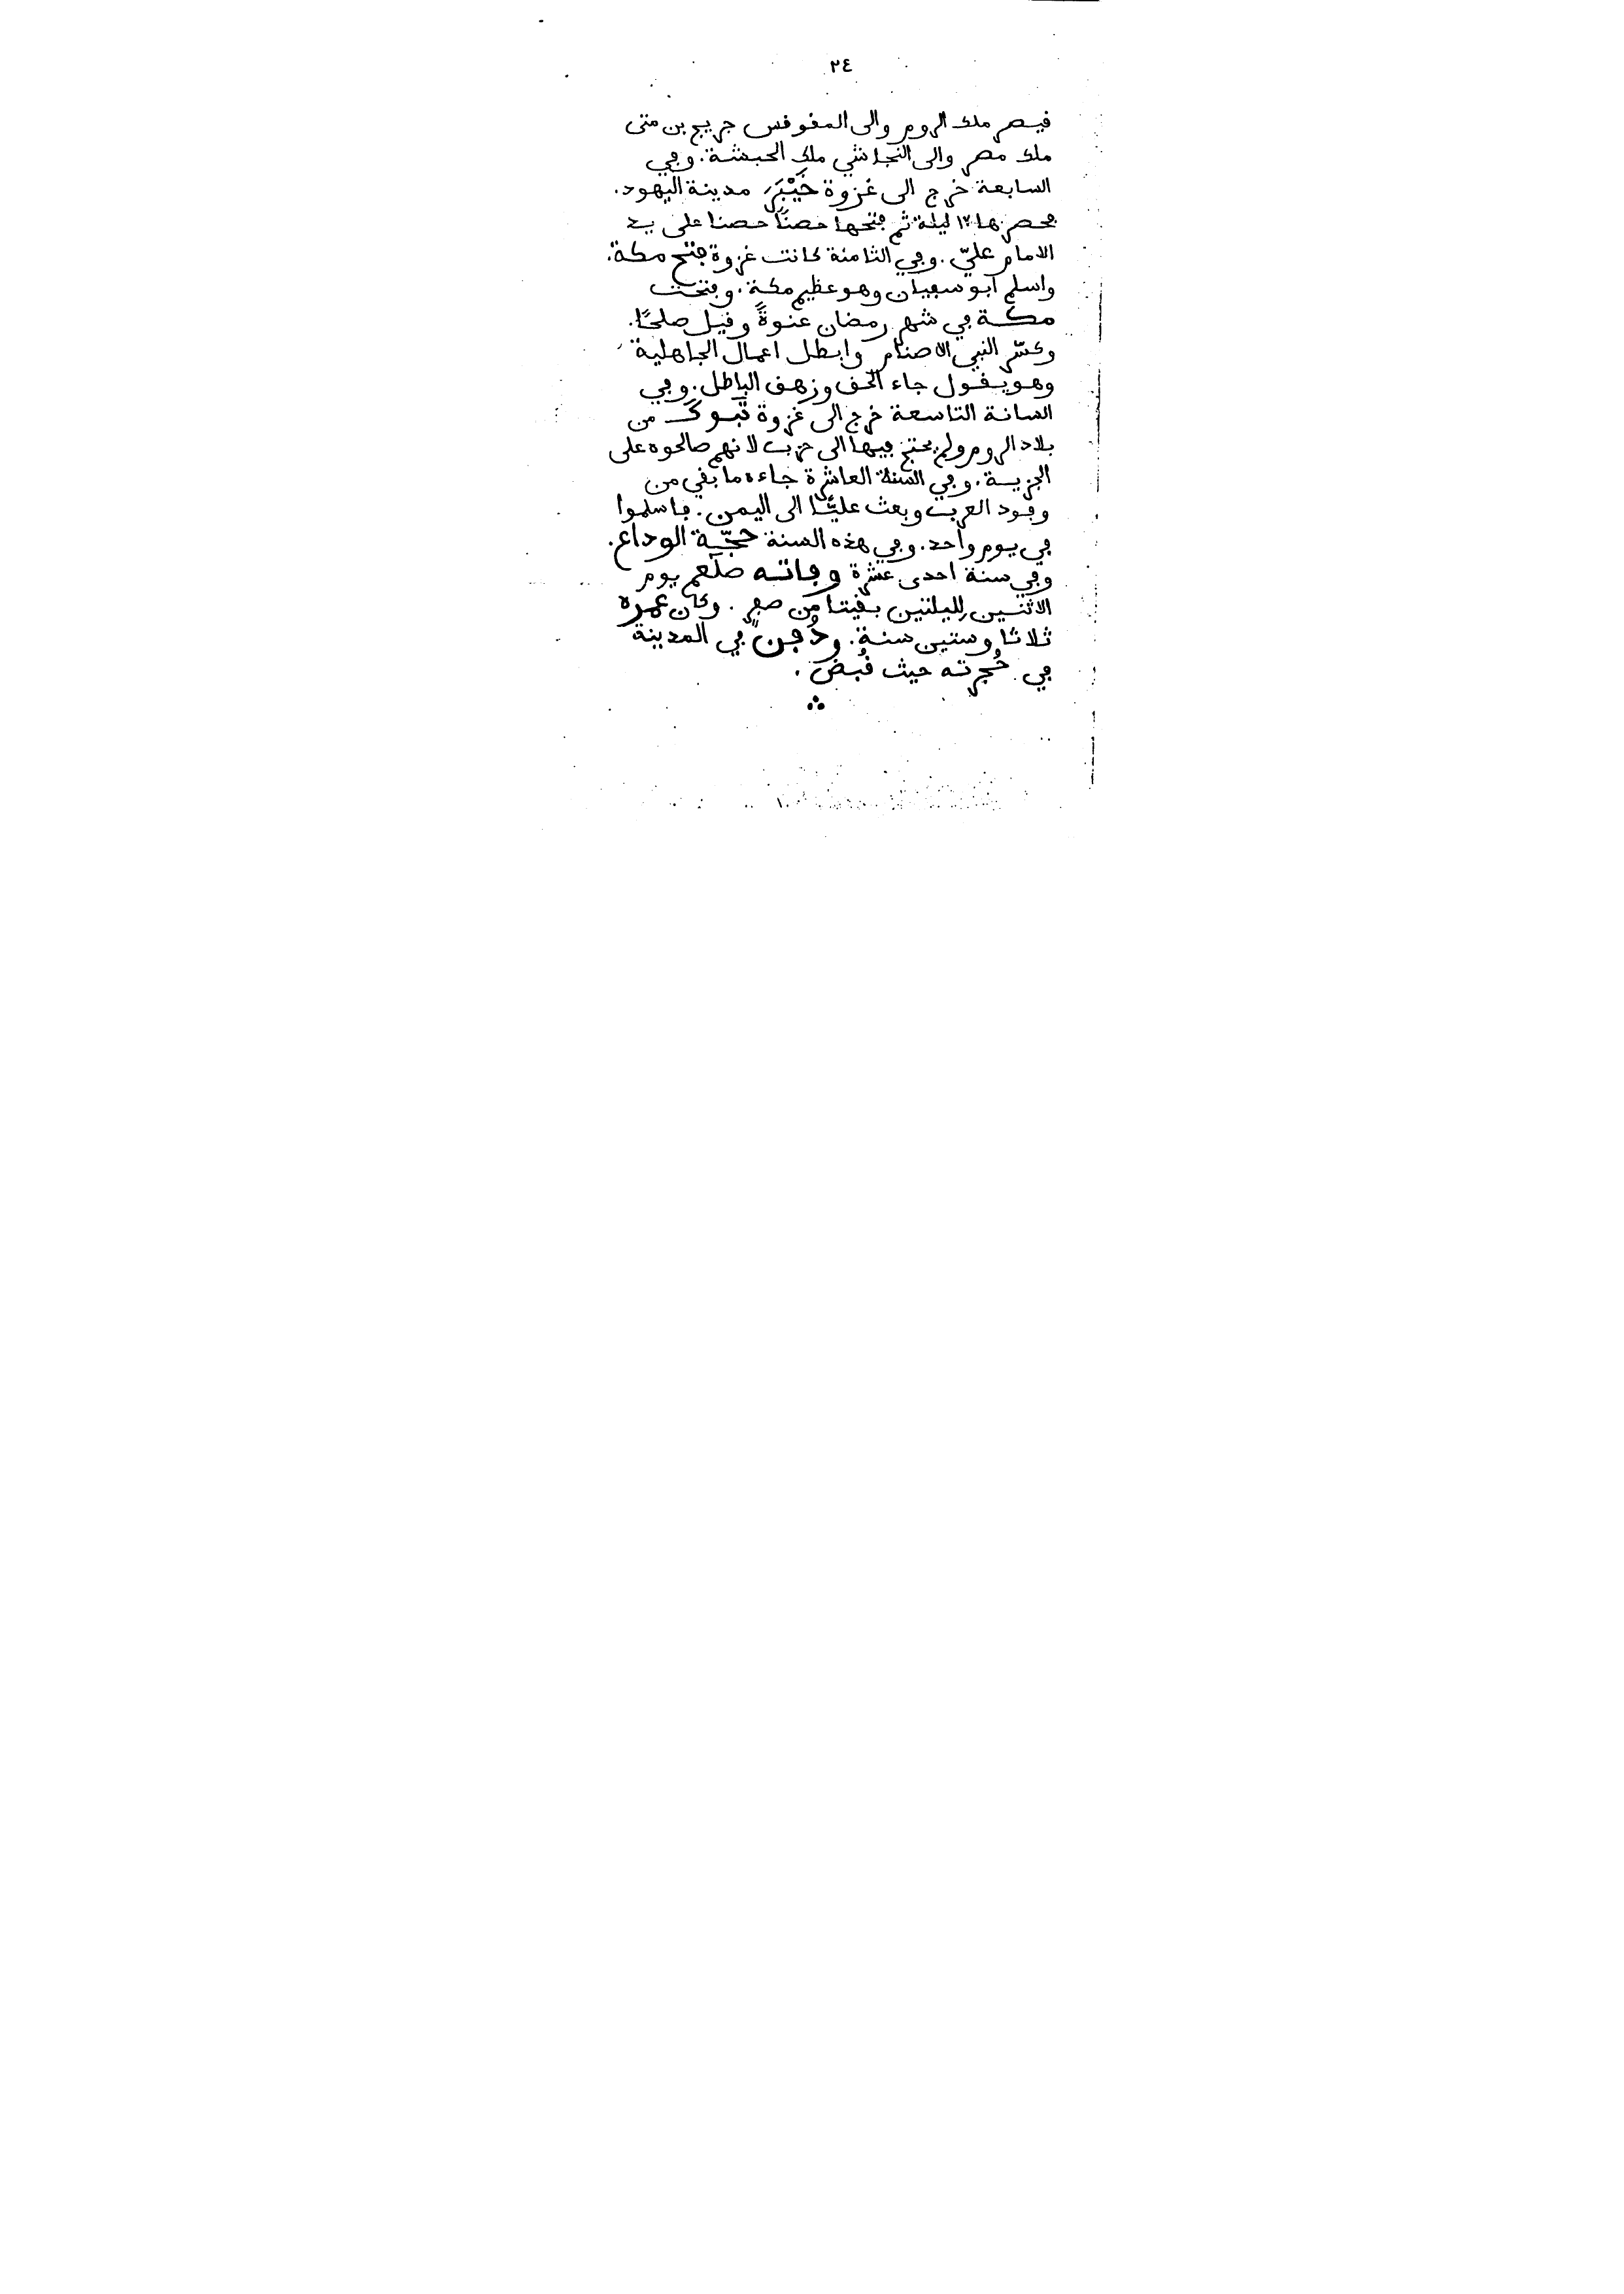 ٢٤
قيصر ملك الروم والى المقوقس جريج بن متى
ملك مصر والى النجاشي ملك الحبشة. وفي
السابعة خرج الى غزوة خَيْبَرَ مدينة اليهود.
فحصرها ١٧ ليلة ثم فتحها حصنًا حصنا على يد
الامام عليّ. وفي الثامنة كانت غزوة فتح مكة.
واسلم ابو سفيان وهو عظيم مكة. وفتحت
مكة في شهر رمضان عنوةً وقيل صلحًا.
وكسّر النبي الاصنام وابطل اعمال الجاهلية
وهو يقول جاء الحق وزهق الباطل. وفي
السانة التاسعة خرج الى غزوة تبوكَ من
بلاد الروم ولم يحتج فيها الى حرب لانهم صالحوه على
الجزية. وفي السنة العاشرة جاءه ما بقي من
وفود العرب وبعث عليًّا الى اليمن. فاسلموا
في يوم واحد. وفي هذه السنة حجّة الوداع.
وفي سنة احدى عشرة وفاته صلعم يوم
الاثنين لليلتين بقيتا من صفر. وكان عمره
ثلاثا وستين سنة. ودُفِنَ في المدينة
في حُجرته حيث قُبض.